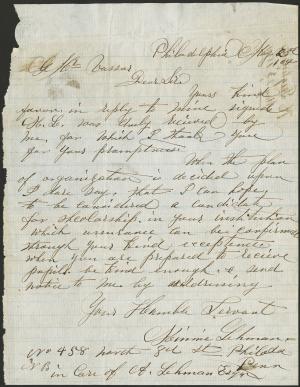 Philadelphia May 22nd
1864
Mr Vassar
Dear Sir
Yours kind
favor in reply to mine signed
M. L. was duly received by
me, for which I thank you
for your promptness
When the plan
of organization is decided upon
I dare say, that I can hope
to be considered a candidate
for scholarship in your institution
which assurance can be confirmed
through your kind acceptance
when you are prepared to receive
pupils be kind enough to send
notice to me by addressing
Your Humble Servant
Minnie Lehman
No 458 north 8th St Philada
Penn
N B in Care of A. Lehman Esqr